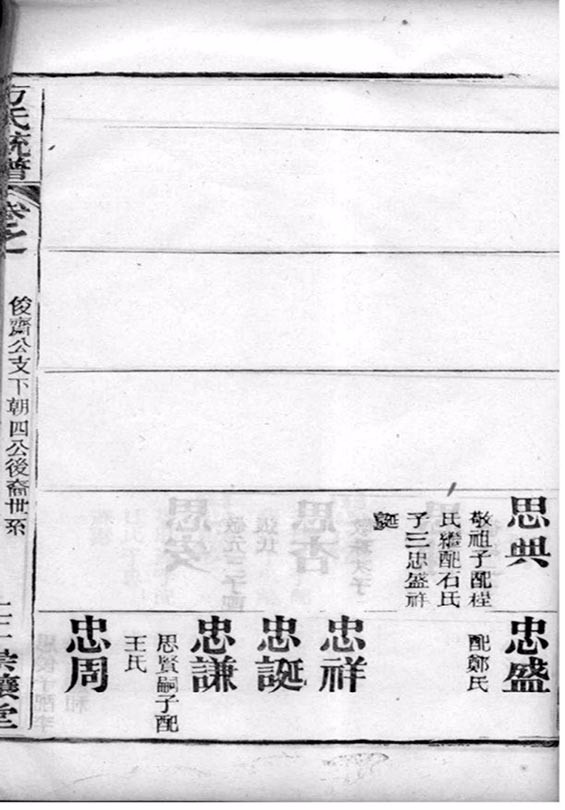 思典
敬祖子配程
氏繼配石氏
子三忠盛祥
誕
忠盛
配鄭氏
忠祥
忠誕
忠謙
思賢嗣子配
王氏
忠周
方氏統譜
卷之
俊齋公支下朝四公後裔世系
堂